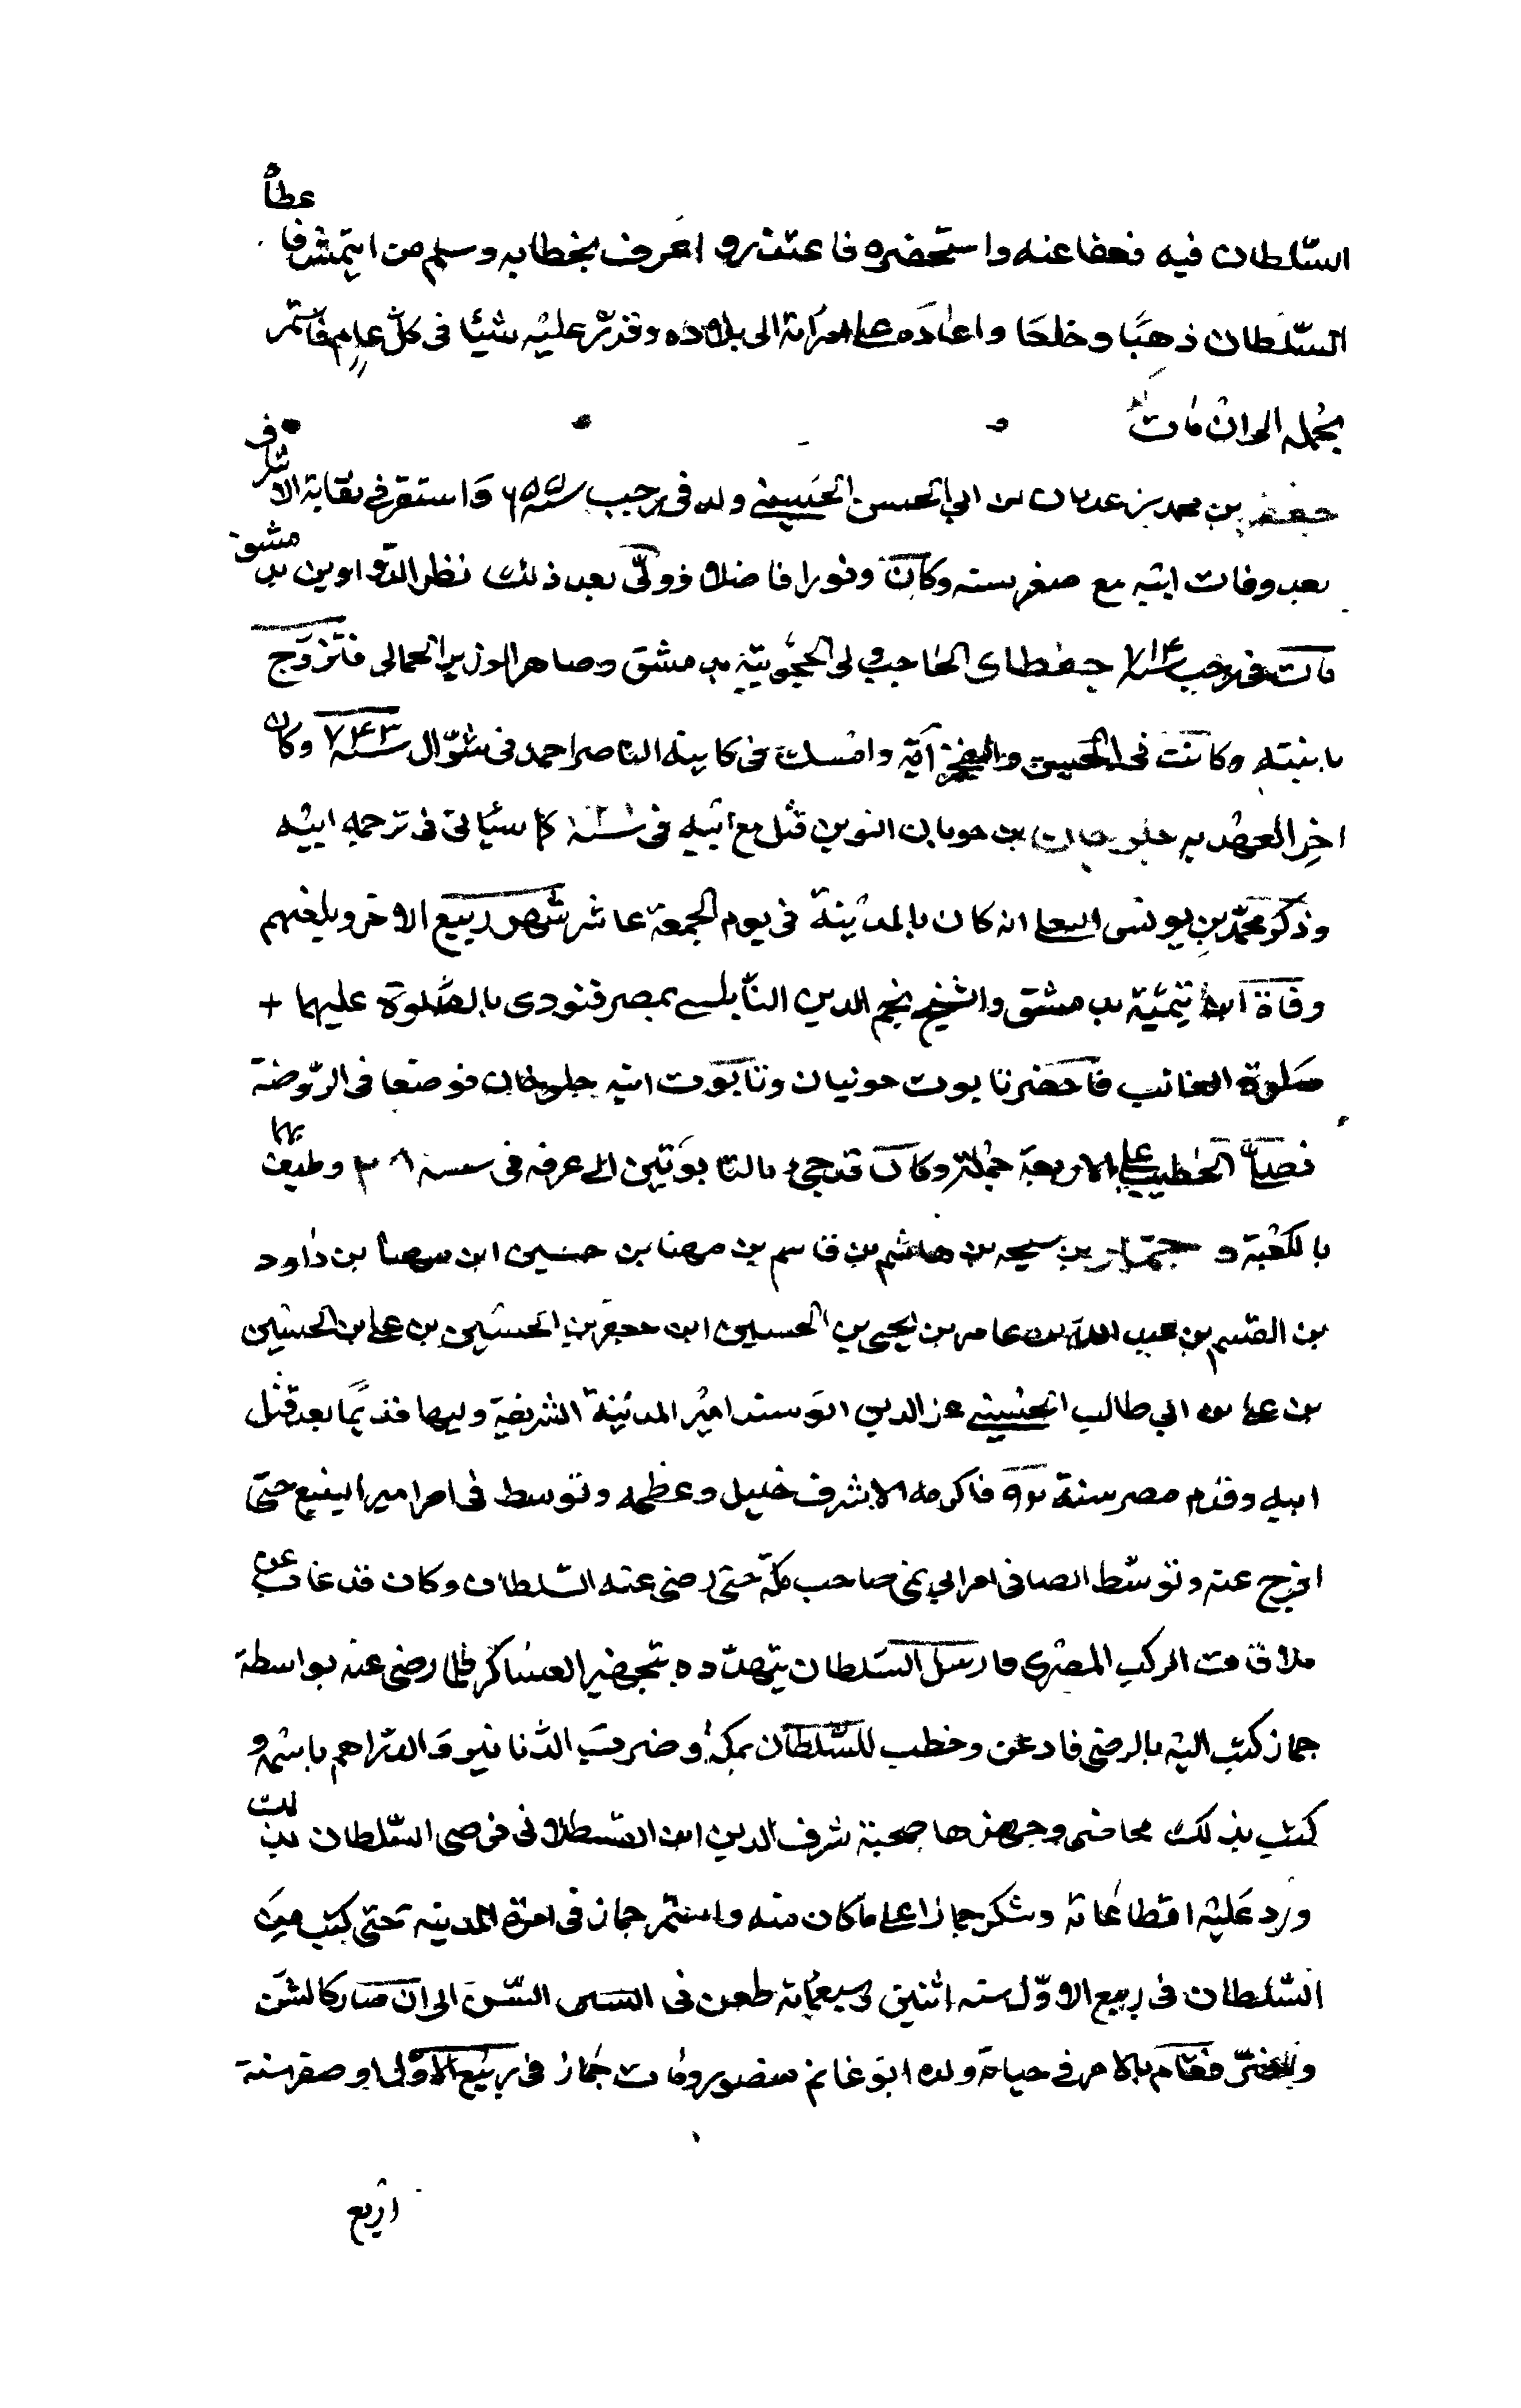 السّلطان فيه فعفا عنه واستحضره فاعتذر واعترف بخطابه وسلم من ايتمش فاعطاه
السّلطان ذهبًا وخلعًا واعاده على امرانة الى بلاده وقدّر عليه شيئا فى كلّ عام فاستمر
بجمله الى ان مات
جعفر بن محمد بن عدنان بن ابي الحسن الحسينى ولد فى رجب سنة ٦٥٥ واستقر فى نقابة الاشراف
بعد وفات ابيه مع صغر سنه وكان وقورا فاضلا وولّى بعد ذلك نظر الدّواوين بدمشق
مات فى رجب سنة ٧١٤ جغطاى الحاجب ولى الحجوبيّة بدمشق وصاهر الوزير الجمالى فتزوّج
بابنته وكانت فى الحسن والفخر آية وامسك فى كاينة الناصر احمد فى شوّال سنة ٧٤٣ وكان
اخر العهد به جلوجان بن جوبان النوين قتل مع ابيه فى سنة كما سياتى فى ترجمه ابيه
وذكر محمّد بن يونس انه كان بالمدينة فى يوم الجمعة عاشر شهر ربيع الاخر وبلغهم
وفاة ابن تيميّة بدمشق والشيخ نجم الدين النابلسى بمصر فنودى بالصّلوة عليهما +
صلوة الغائب فاحضر تابوت جونيان وتابوت ابنه جلوخان فوضعا فى الرّوضة
فصلّى الخطيب على الاربعة جملة وكان قد جىء بالتابوتين الى عرفه فى سنة ٢٨ وطيف بهما
بالكعبة و جمّاز بن سيحه بن هاشم بن قاسم بن مهنا بن حسين ابن مهنا بن داود
بن القسم بن عبد الله بن عامر بن يحيى بن الحسين ابن جعفر بن الحسين بن على بن الحسين
بن على بن ابي طالب الحسينى عز الدين ابو سند امير المدينة الشريفة وليها قديمًا بعد قتل
ابيه وقدم مصر سنة ٩٢ فاكرمه الاشرف خليل وعظمه وتوسط فى امر امير الينبع حتى
افرج عنه وتوسّط ايضا فى امر ابي نمى صاحب مكّة حتى رضى عنه السّلطان وكان قد غاب عن
ملاقات الركب المصرى فارسل السّلطان يتهدّده بتجهيز العساكر فلما رضى عنه بواسطة
جماز كتب اليه بالرضى فاذعن وخطب للسّلطان بمكة وضربت الدّنانير والدّراهم باسمه و
كتب بذلك محاضر وجهزها صحبة شرف الدين ابن القسطلانى فرضى السّلطان بذلك
ورد عليه اقطاعاته وشكر جمازا على ماكان منه واستمر جماز فى امرة المدينه حتى كتب من
السّلطان فى ربيع الاوّل سنه اثنين وسبعمائة طعن فى السن الى ان صار كالشن
فقام بالامر فى حياته ولده ابو غانم منصور ومات جماز فى ربيع الاوّل او صفر سنة
اربع